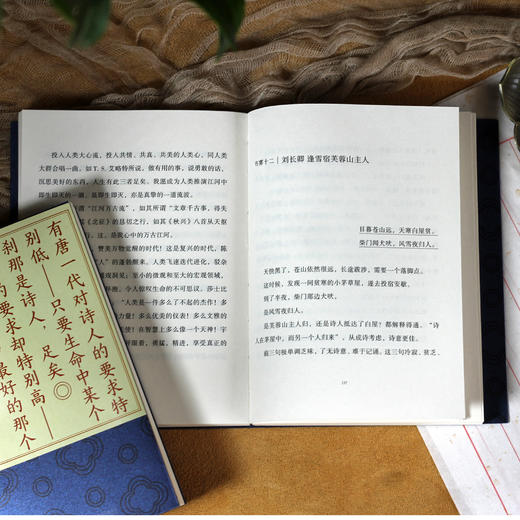 投入人类大心流，投入共情、共真、共美的人类心，同人类
大群合唱一曲。如 T. S. 艾略特所说，做有用的事，说勇敢的话，
沉思美好的东西，人生有此三者足矣。我愿成为人类推演江河中
即生即灭的一滴，是即生即灭，亦是真挚的一道流波。
如其所谓“江河万古流”，如其所谓“文章千古事，得失
《北征》的恳切之行，如其《秋兴》八首从天枢
注。是我心中的万古江河。
赞美万物觉醒的时代！这是复兴的时代，陈
的蓬勃翻来，人类飞速迭代进化，驳杂
洞见；至小的微观和至大的宏观领域，
令人惊叹生命的不可思议。莎士比
“人类是一件多么了不起的杰作！多
力量！多么优美的仪表！多么文雅的
在智慧上多么像一个天神！宇
眼着，勇猛，精进，享受真正的
五章十二｜刘长卿 逢雪宿芙蓉山主人
日暮苍山远，天寒白屋贫。
柴门闻犬吠，风雪夜归人。
天快黑了，苍山依然很远，长途跋涉，需要一个落脚点。
这时候，发现一间贫寒的小茅草屋，遂去投宿安歇。
到了半夜，柴门那边犬吠，
是风雪夜归人。
是芙蓉山主人归，还是诗人抵达了白屋！都解释得通。“诗
人在茅屋中，而另一个人归来”，从成诗考虑，诗意更佳。
前三句极单调乏味，了无诗意，难于记诵。这三句冷寂，贫乏，
137
有唐一代对诗人的要求特
别低——只要生命中某个
刹那是诗人，足矣。
的要求却特别高——
最好的那个